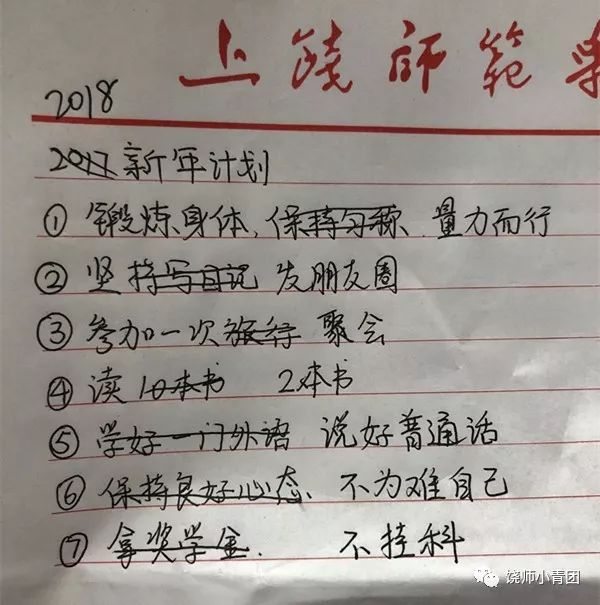 上饶师范
2018
2017新年计划
①锻炼身体,保持匀称、量力而行
②坚持写日记 发朋友圈
③参加一次旅行 聚会
④读10本书 2本书
⑤学好一门外语 说好普通话
⑥保持良好心态、不为难自己
⑦拿奖学金. 不挂科
饶师小青团